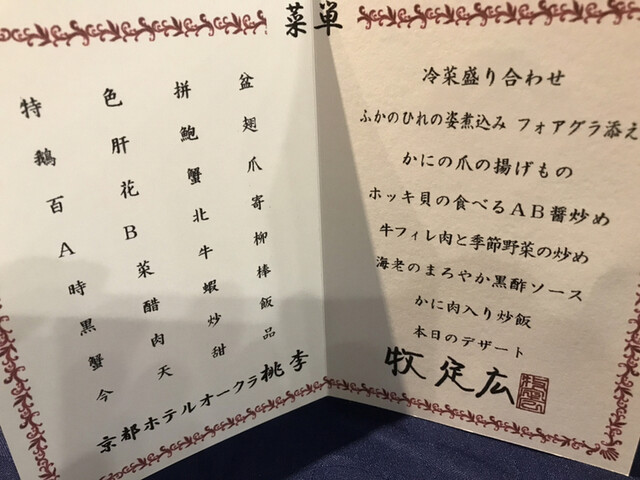 菜単
特色拼盆
鵝肝鮑翅
百花蟹爪
AB北寄
時菜牛柳
黒醋蝦棒
蟹肉炒飯
今天甜品
京都ホテルオークラ桃李
冷菜盛り合わせ
ふかのひれの姿煮込み フォアグラ添え
かにの爪の揚げもの
ホッキ貝の食べるAB醤炒め
牛フィレ肉と季節野菜の炒め
海老のまろやか黒酢ソース
かに肉入り炒飯
本日のデザート
牧定広